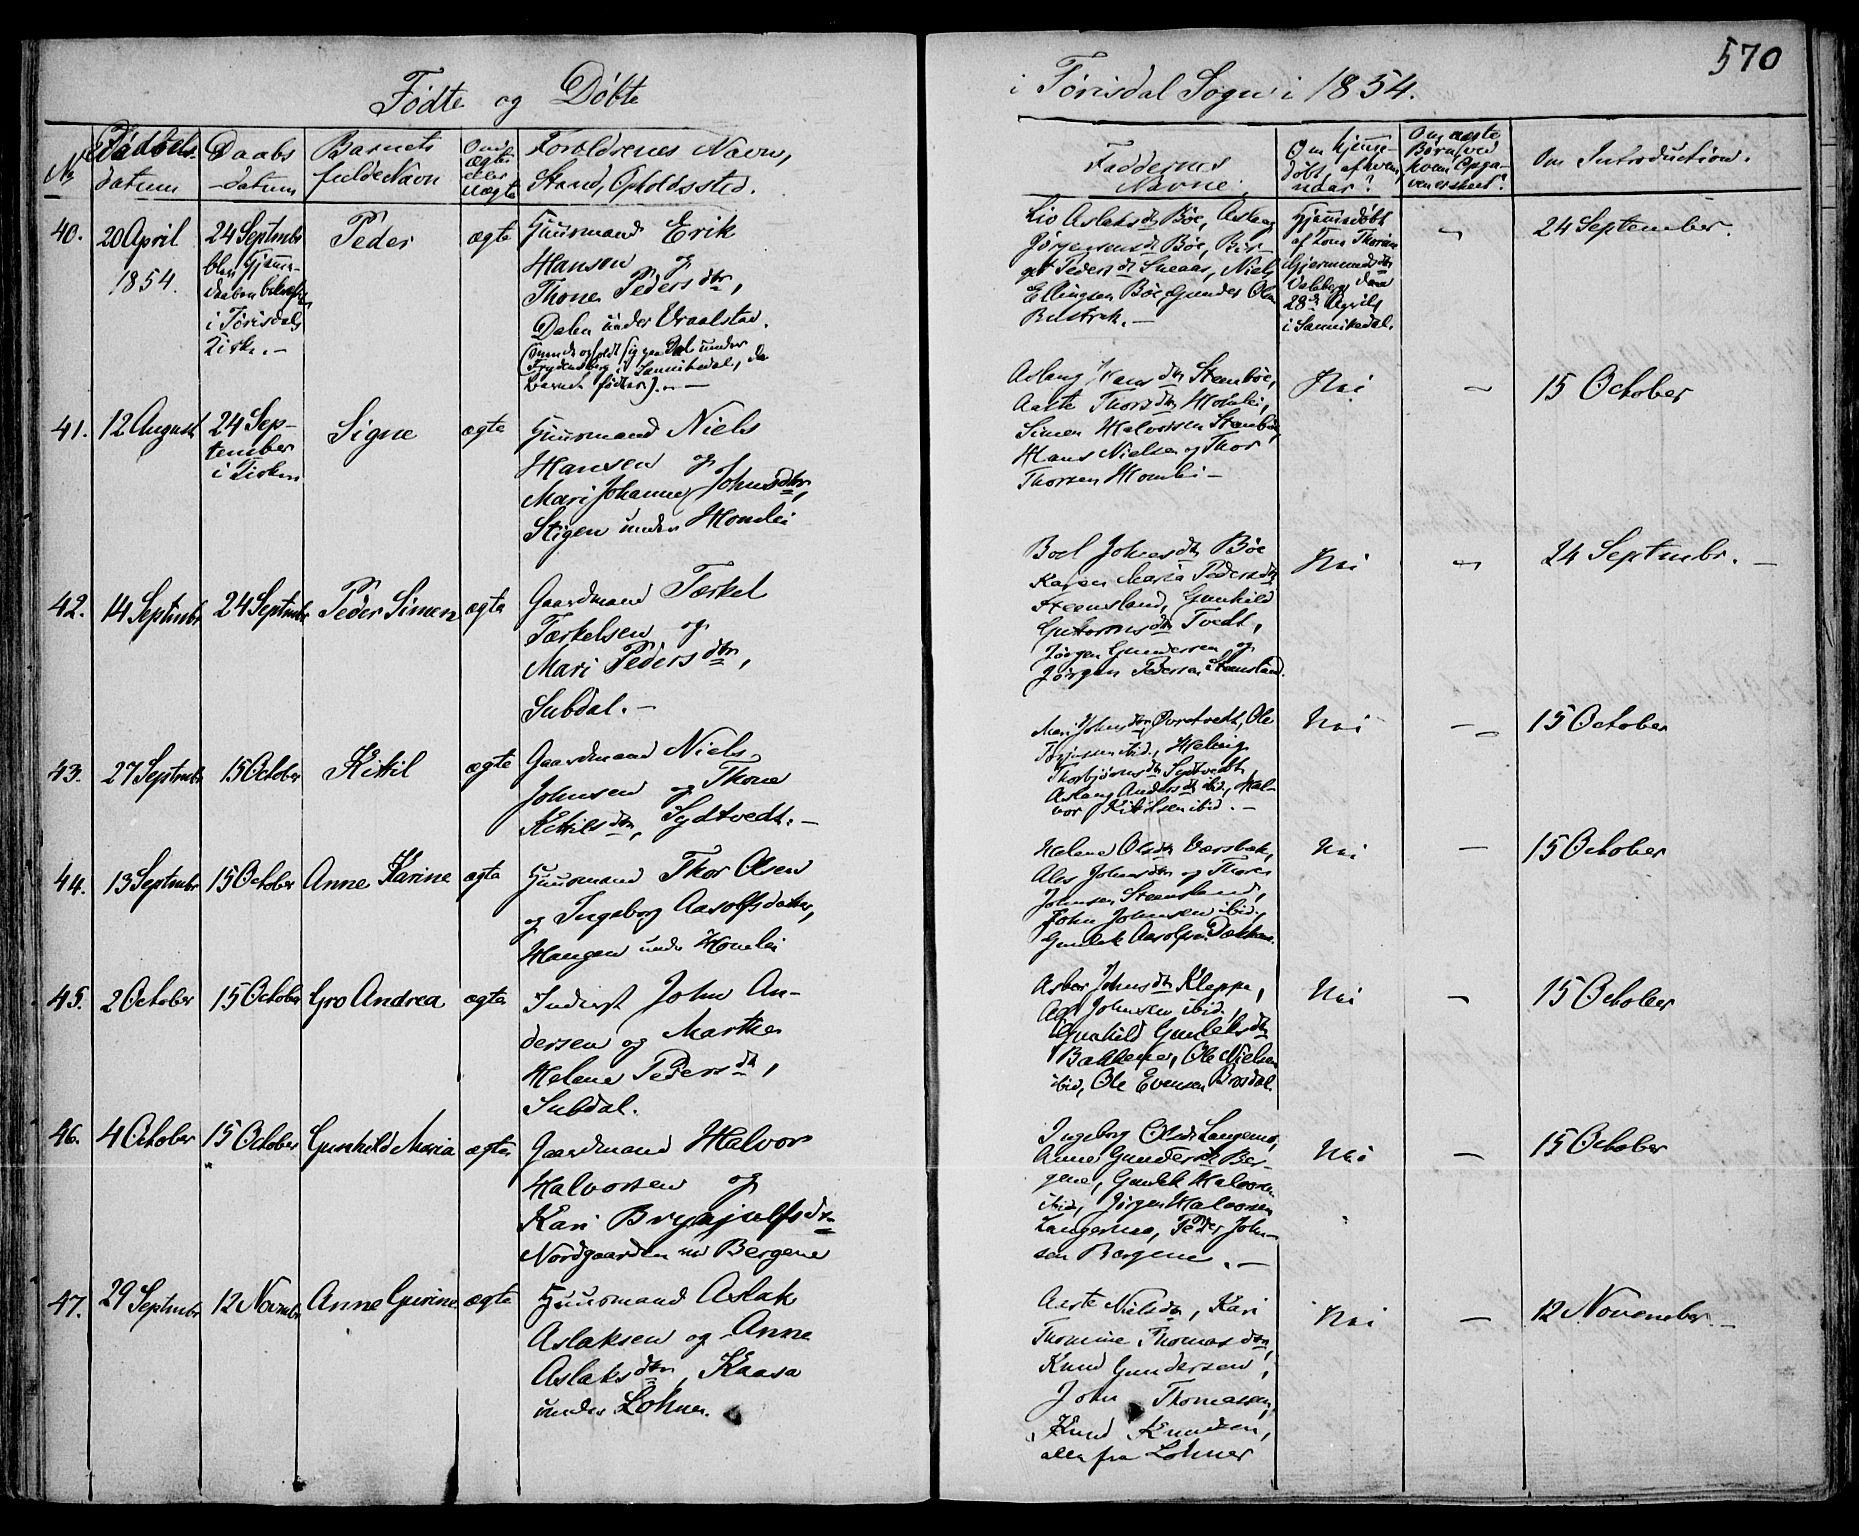 570
Fødte og Døbte
i Tørisdal Sogn i 1854.
No
Fødsels-
datum
Daabs
-datum
Barnets
fulde Navn
Om
ægte
eller
uægte
Forældrenes Navn,
Stand, Opholdssted.
Faddernes
Navne.
Om hjemme-
døbt, af hvem,
naar?
Om
Børn, ved
hvem
Om Introduction.
40.
20 April
1854.
24 Septmbr
blev hjemme-
daaben
i Tørisdals
Kirke. —
Peder
ægte
Huusmand Erik
Hansen og
Thone Pedersdtr,
Dalen under Vraalstad.
under
i Sannikedal, da
Barnet fødtes). —
Liv Aslaksdtr Bøe, Aslaug
Jørgensdtr Bøe,
Pedersdtr Sneaas, Niels
Ellingsen Bøe Gunder Olsen
Hjemmedøbt
af
28de April
i Sannikedal.
"
24 September.
41.
12 August
24 Sep-
tember
i Kirken
Signe
ægte
Huusmand Niels
Hansen og
Mari Johanne Johnsdtr,
Stigen under Homlei
Aslaug Hansdtr Steenbøe,
Aaste Thorsdtr Homlei,
Simen Halvorsen Steenbøe,
Hans Nielsen og Thor
Thorsen Homlei —
Nei
"
15 October
42.
14 Septmbr
24 Septmbr
Peder Simen
ægte
Gaardmand Terkel
Terkelsen og
Mari Pedersdtr,
Subdal. —
Boel Johnsdtr Bøe
Karen Maria Pedersdtr
Steensland, Gunhild
Guttormsdtr Tvedt,
Jørgen Gundersen og
Jørgen Pedersen Steensland.
Nei
"
24 Septmbr. —
43.
27 Septmbr
15 October
Kittil
ægte
Gaardmand Niels
Johnsen og Thone
Kittilsdtr, Sydtvedt. —
Mari Johnsdtr Øvretvedt, Ole
ibid., Helvig
Thorbjørnsdtr Sydtvedt,
Aslaug Andersdtr ibid, Hal-
vor Kittilsen ibid. —
Nei
—
15 October
44.
13 Septmbr
15 October
Anne Karine
ægte
Huusmand Thor Olsen
og Ingeborg Aasolfsdatter,
Haugen under Homlei
Helene Olsdtr
Johnsdtr og Thore
Johnsen Steensland,
John Johnsen ibid,
Gunlek Aasolfsen
Nei
—
15 October
45.
2 October
15 October
Gro Andrea
ægte
Inderst John An-
dersen og Marthe
Helene Pedersdtr,
Subdal.
Asber Johnsdtr Kleppe,
Johnsen ibid.
Gunhild Gunleksdtr
Bakkene, Ole Nielsen
ibid, Ole Evensen Brosdal.
Nei
—
15 October
46.
4 October
15 October
Gunhild Maria
ægte
Gaardmand Halvor
Halvorsen og
Kari Brynjulfsdtr
Nordgaarden Bergene
Ingeborg Olsdtr Langemo,
Anne Gundersdtr Ber-
gene, Gunlek Halvorsen
ibid, Jørgen Halvorsen
Langemo, Peder John-
sen Bergene. —
Nei
—
15 October
47.
29 Septmbr
12 Novmbr
Anne Gurine
ægte
Huusmand Aslak
Aslaksen og Anne
Aslaksdtr, Kaasa
under Lohner.
Aaste Nielsdtr, Kari
Thomine Thomasdtr,
Knud Gundersen,
John Thomassen,
Knud Knudsen,
alle fra Lohner
Nei
—
12 November. —